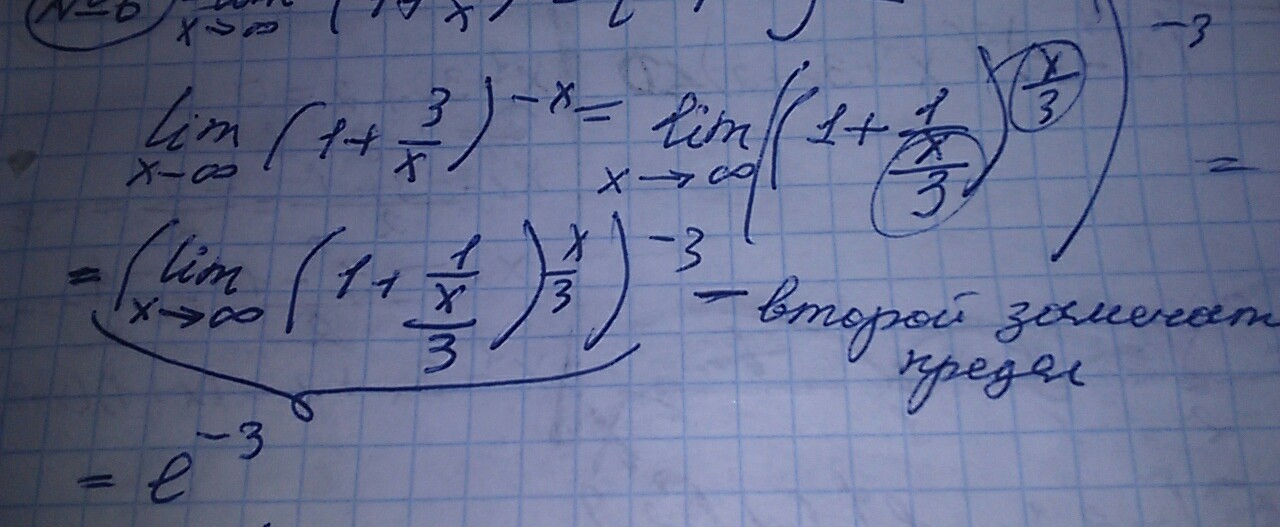 №6 lim x→∞
lim x-∞ (1 + 3/x)^-x = lim x→∞ ((1 + 1/(x/3))^(x/3))^-3 =
= (lim x→∞ (1 + 1/(x/3))^(x/3))^-3 - второй замечат
предел
= e^-3